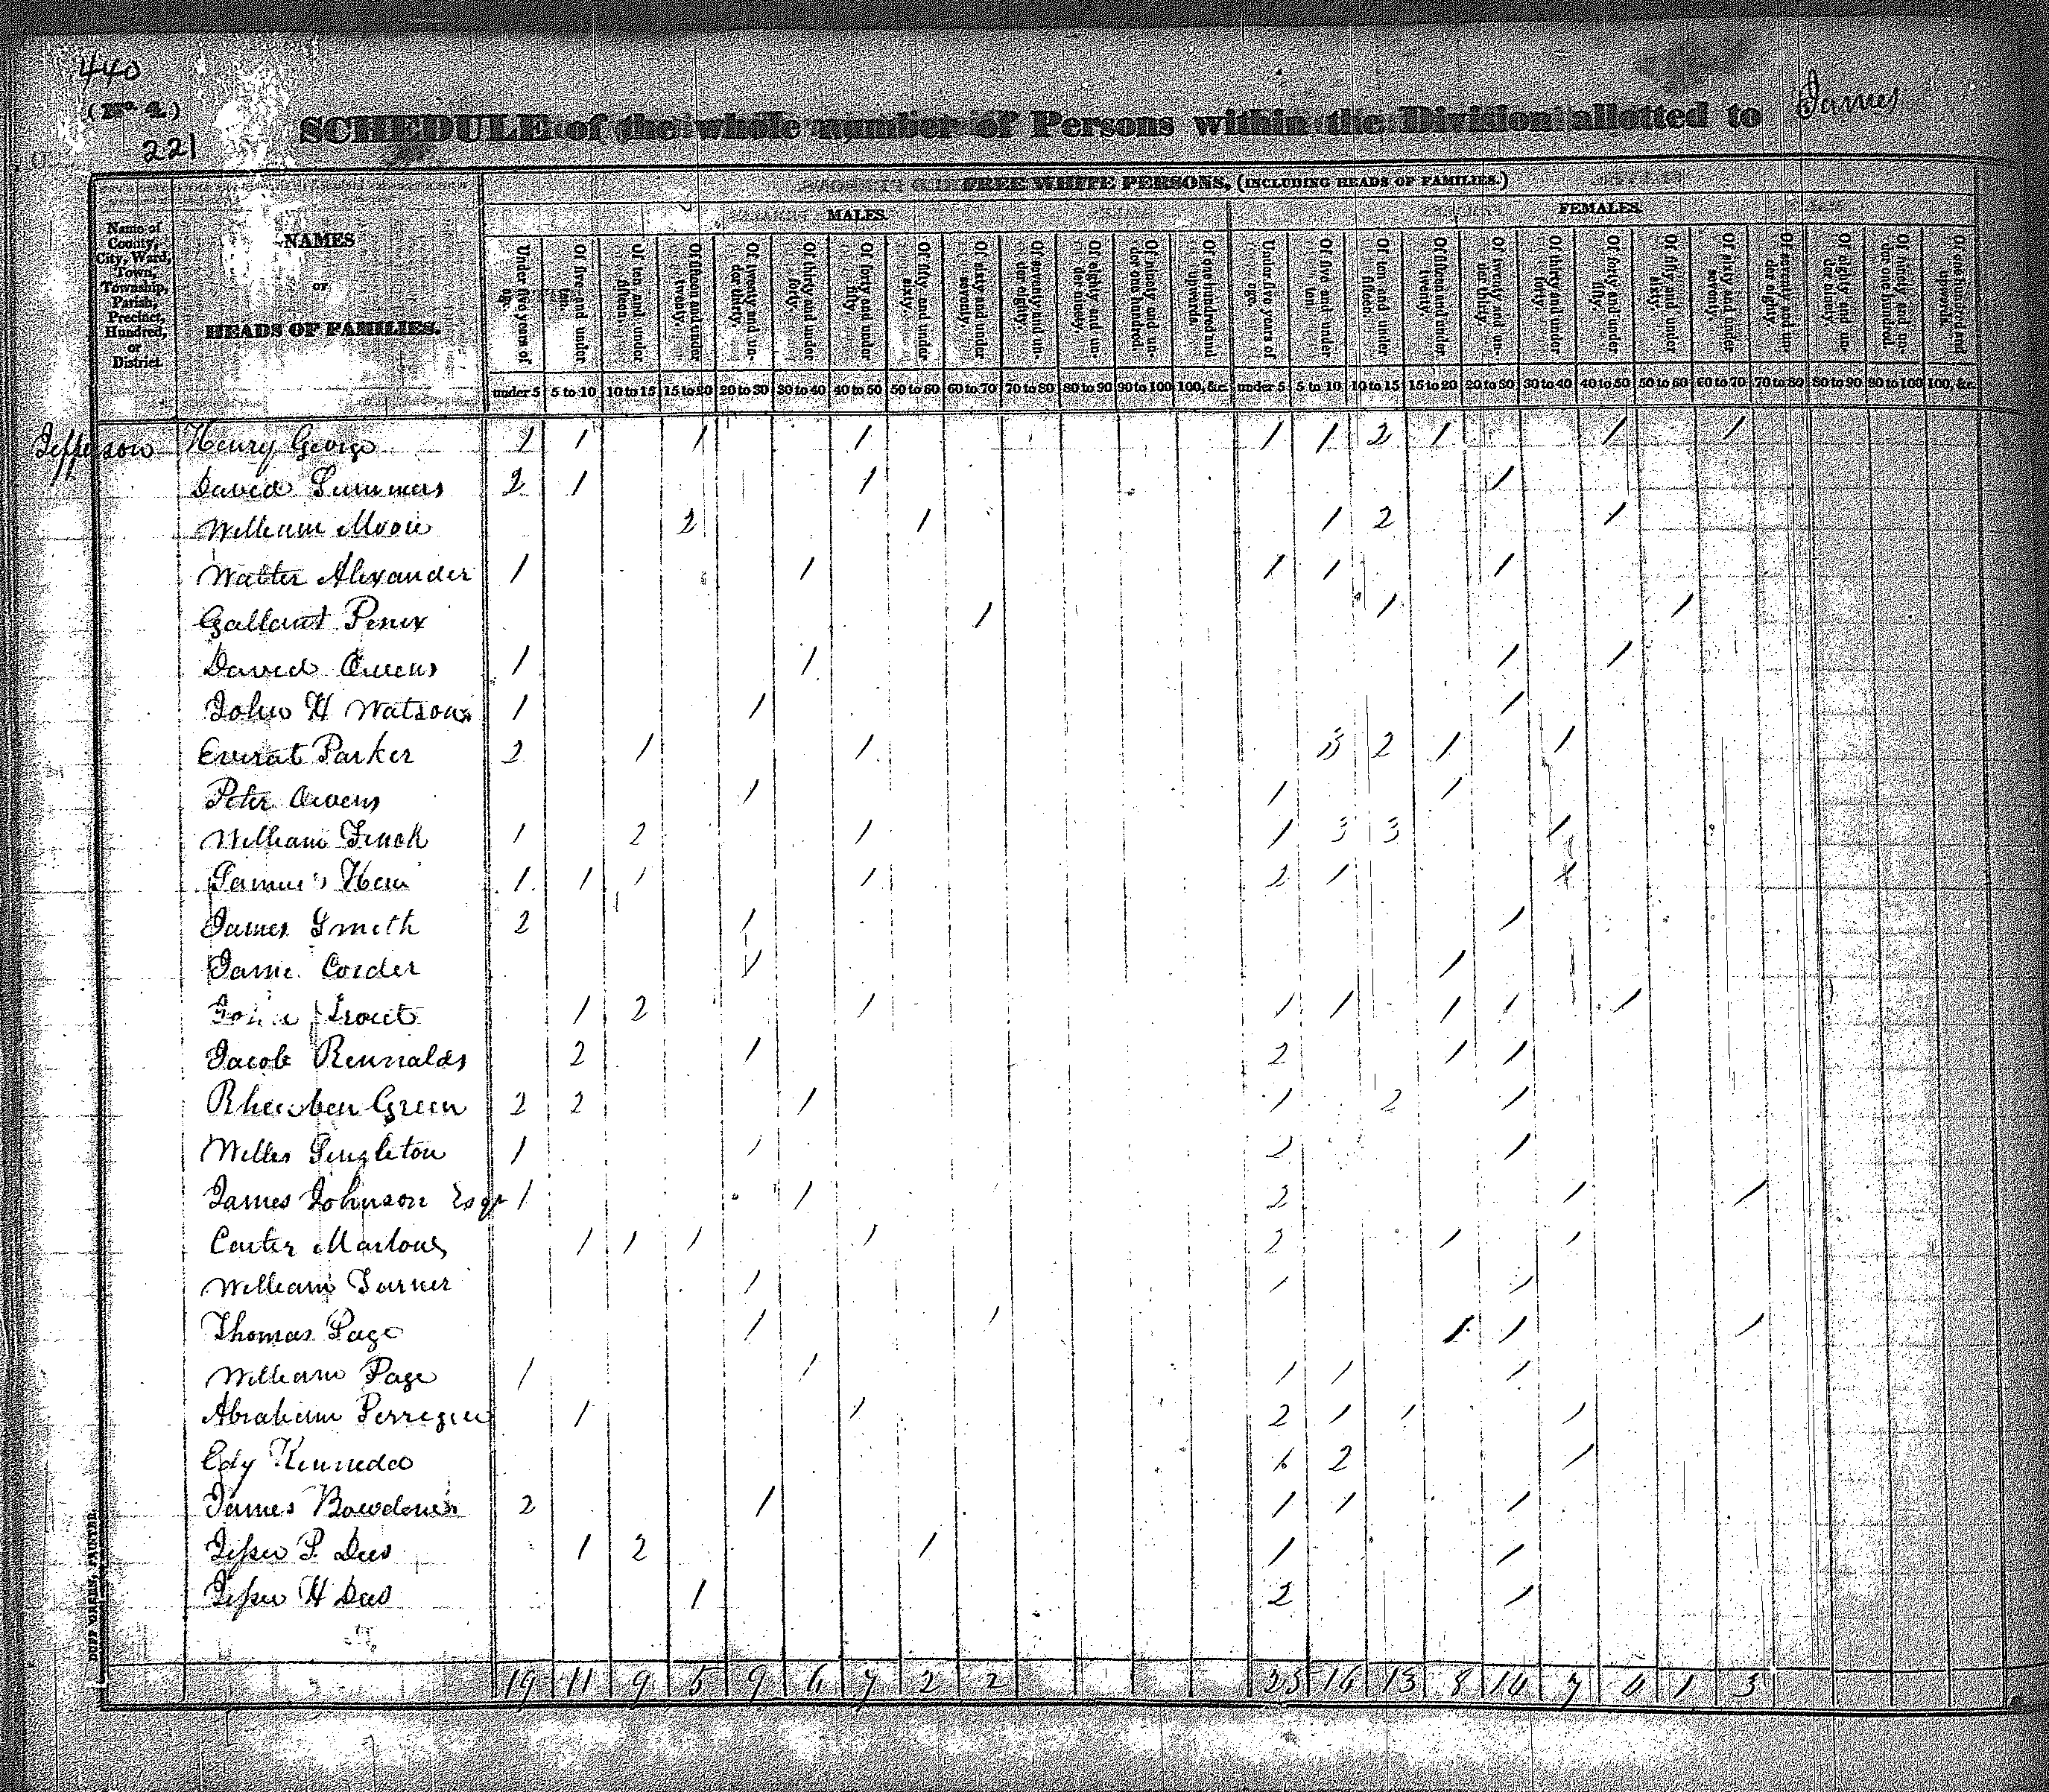 440
(No. 4.)
221
SCHEDULE of the whole number of Persons within the Division allotted to James
FREE WHITE PERSONS, (INCLUDING HEADS OF FAMILIES.)
MALES. FEMALES.
Name of County, City, Ward, Town, Township, Parish, Precinct, Hundred, or District.
NAMES
OF
HEADS OF FAMILIES.
Under five years of age. Of five and under ten. Of ten and under fifteen. Of fifteen and under twenty. Of twenty and under thirty. Of thirty and under forty. Of forty and under fifty. Of fifty and under sixty. Of sixty and under seventy. Of seventy and under eighty. Of eighty and under ninety. Of ninety and under one hundred. Of one hundred and upwards. Under five years of age. Of five and under ten. Of ten and under fifteen. Of fifteen and under twenty. Of twenty and under thirty. Of thirty and under forty. Of forty and under fifty. Of fifty and under sixty. Of sixty and under seventy. Of seventy and under eighty. Of eighty and under ninety. Of ninety and under one hundred. Of one hundred and upwards.
under 5 5 to 10 10 to 15 15 to 20 20 to 30 30 to 40 40 to 50 50 to 60 60 to 70 70 to 80 80 to 90 90 to 100 100, &c. under 5 5 to 10 10 to 15 15 to 20 20 to 30 30 to 40 40 to 50 50 to 60 60 to 70 70 to 80 80 to 90 90 to 100 100, &c.
Jefferson Henry George 1 1 1 1 1 1 2 1 1 1
David Summers 2 1 1 1
William Moore 2 1 1 2 1
Walter Alexander 1 1 1 1 1
Gallant Penix 1 1 1
David Owens 1 1 1 1
John H Watson 1 1 1
Everat Parker 2 1 1 3 2 1 1
Peter Owens 1 1 1
William Finch 1 2 1 1 3 3 1
1 1 1 1 2 1 1
James Smith 2 1 1
Corder 1 1
Trout 1 2 1 1 1 1 1 1
Jacob Rennalds 2 1 2 1 1
Rheuben Green 2 2 1 1 2 1
Willes Singleton 1 1 2 1
James Johnson Esqr 1 1 2 1 1
Carter Marlow 1 1 1 1 2 1 1
William Turner 1 1 1
Thomas Page 1 1 1 1 1
William Page 1 1 1 1 1
Abraham 1 1 2 1 1 1
Edy 2 1
James 2 1 1 1 1
Jesse P. Dees 1 2 1 1 1
Jesse H Dees 1 2 1
19 11 9 5 9 6 9 2 2 23 16 13 8 14 7 4 1 3
DUFF GREEN, PRINTER.